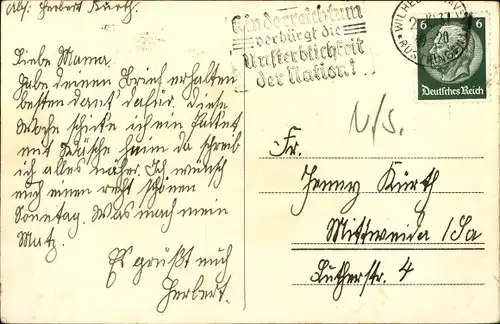 Abs: Herbert Kürth.
Liebe Mama.
Habe deinen Brief erhalten
besten dank dafür. Diese
Woche schicke ich ein Paket
mit Wäsche heim da schreib
ich alles näher. Ich wünsch
euch einen recht schönen
Sonntag. Was mach mein
Matz.
Es grüßt euch
Herbert.
Kinderreichtum
verbürgt die
Unsterblichkeit
der Nation!
WILHELMSHAVEN
RÜSTRINGEN
6 6
Deutsches Reich
N/S.
Fr.
Jenny Kürth
Mittweida /Sa
Lutherstr. 4